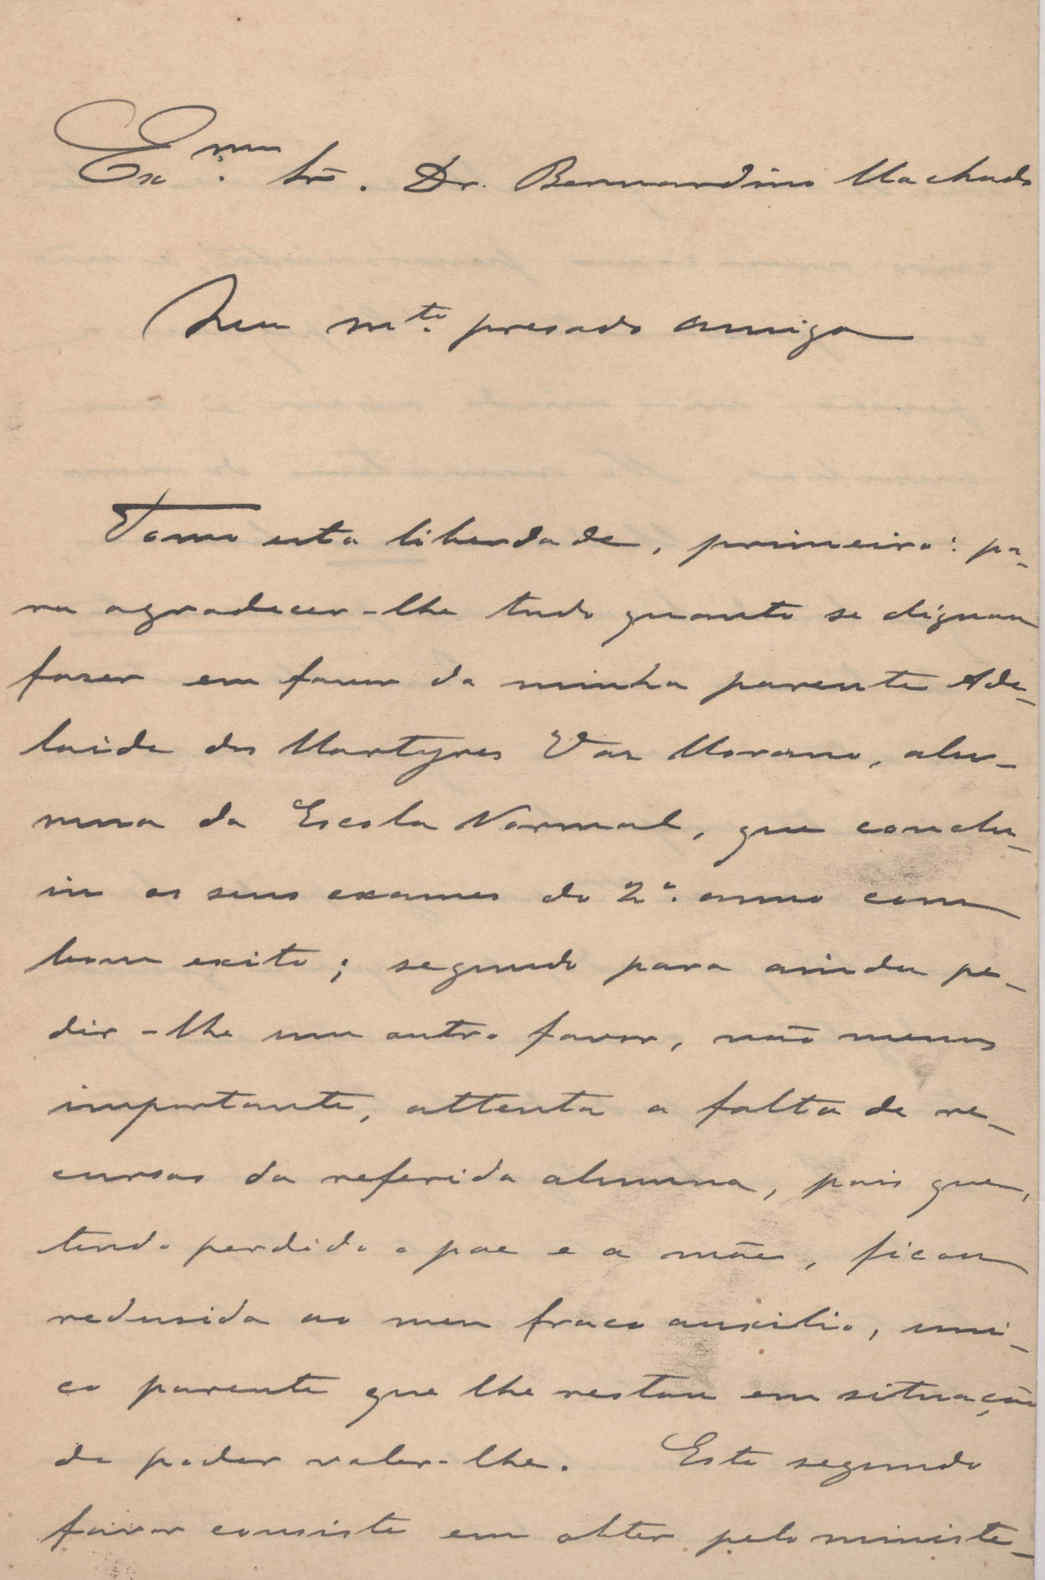 Ex.mo Sr. Dr. Bernardino Machado
Meu mto. presado amigo
Tomo esta liberdade, primeiro: pa-
ra agradecer-lhe tudo quanto se dignou
faser em favor da minha parente Ade-
laide dos Martyres Vaz Morano, alu-
mna da Escola Normal, que conclu-
iu os seus exames do 2.º anno com
bom exito; segundo para ainda pe-
dir-lhe um outro favor, não menos
importante, attenta a falta de re-
cursos da referida alumna, pois que,
tendo perdido o pae e a mãe, ficou
redusida ao meu fraco auxilio, uni-
co parente que lhe restou em situação
de poder valer-lhe. Este segundo
favor consiste em obter pelo ministe-